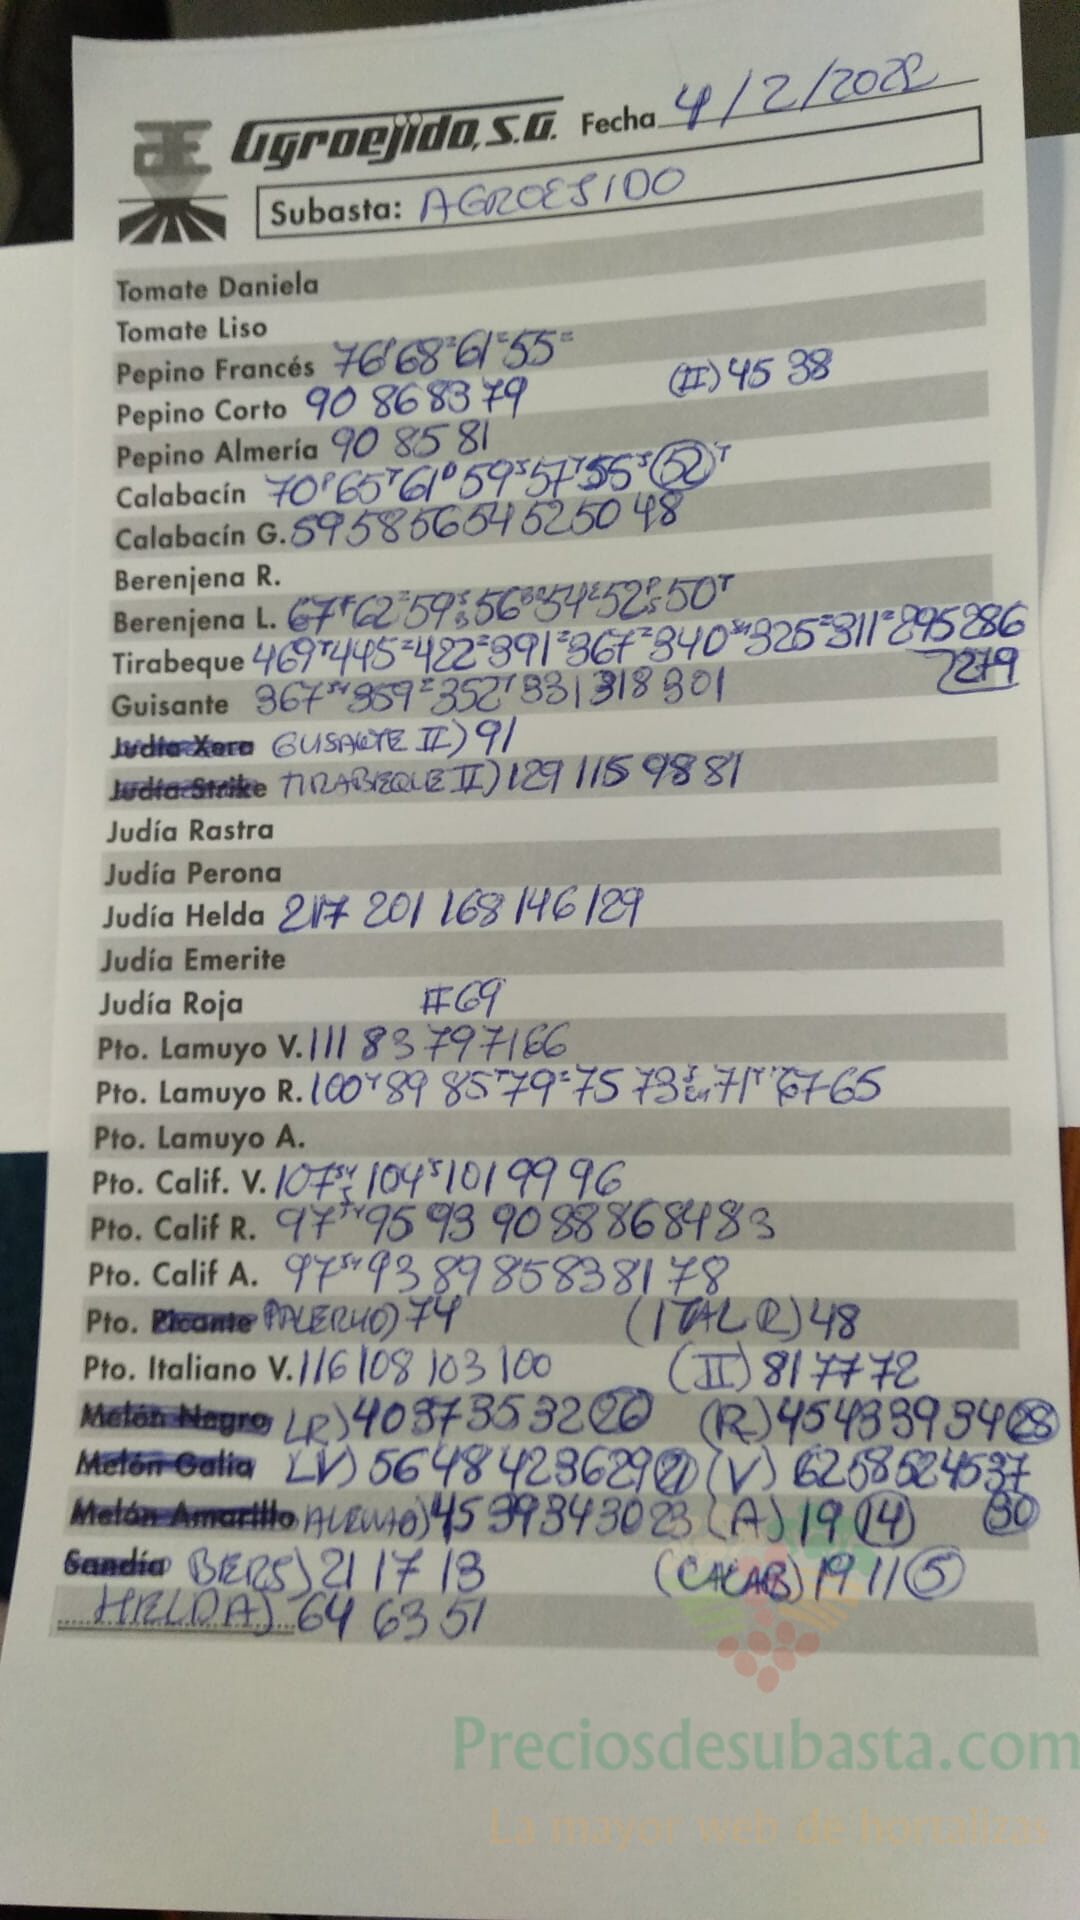 Agroejido, S.A. Fecha 4/2/2022
Subasta: AGROEJIDO
Tomate Daniela
Tomate Liso
Pepino Francés 76 68 = 61 = 55 =
Pepino Corto 90 86 83 79 (II) 45 38
Pepino Almería 90 85 81
Calabacín 70 65 61 59 57 55 52
Calabacín G. 59 58 56 54 52 50 48
Berenjena R.
Berenjena L. 67 62 59 56 54 52 50
Tirabeque 469 445 = 422 = 391 = 367 = 340 325 = 311 = 295 286
279
Guisante 367 359 352 331 318 301
Judía Xera GUISANTE II) 91
Judía Strike TIRABEQUE II) 129 115 98 81
Judía Rastra
Judía Perona
Judía Helda 217 201 168 146 129
Judía Emerite
Judía Roja II 69
Pto. Lamuyo V. 111 83 79 71 66
Pto. Lamuyo R. 100 89 85 79 = 75 73 71 67 65
Pto. Lamuyo A.
Pto. Calif. V. 107 104 101 99 96
Pto. Calif R. 97 95 93 90 88 86 84 83
Pto. Calif A. 97 93 89 85 83 81 78
Pto. Picante PALERMO) 74 (ITAL R) 48
Pto. Italiano V. 116 108 103 100 (II) 81 77 72
Melón Negro LR) 40 37 35 32 26 (R) 45 43 39 34 28
Melón Galia LV) 56 48 42 36 29 21 (V) 62 58 52 45 37
Melón Amarillo ALEMAO) 45 39 34 30 23 (A) 19 14 30
Sandía BERS) 21 17 13 (CALAB) 19 11 5
HELDA) 64 63 51
Preciosdesubasta.com
La mayor web de hortalizas